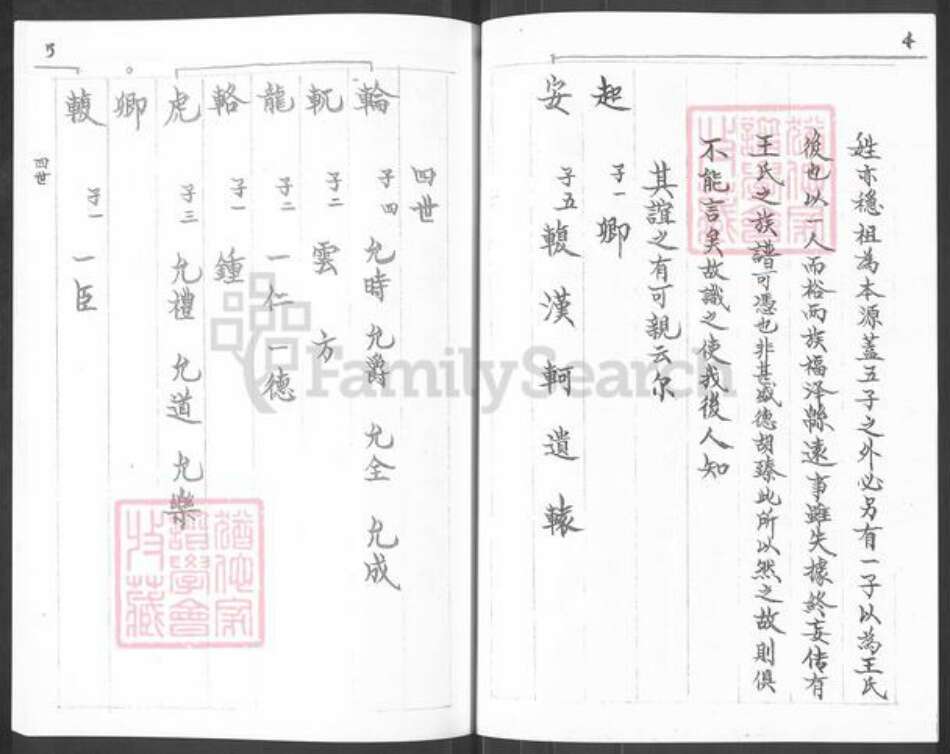 4
姓亦穩祖為本源蓋五子之外必另有一子以為王氏
後也以一人而裕兩族福澤緜遠事雖失據終妄傳有
王氏之族譜可憑也非甚盛德胡臻此所以然之故則俱
不能言矣故識之使我後人知
其誼之有可親云尔
起 子一 卿
安 子五 輹 漢 軻 遺 轅
5
四世
輪 子四 允時 允爵 允全 允成
軏 子二 雲 方
龍 子二 一仁 一德
輅 子一 鍾
虎 子三 允禮 允道 允樂
卿
輹 子一 一臣
四世
FamilySearch